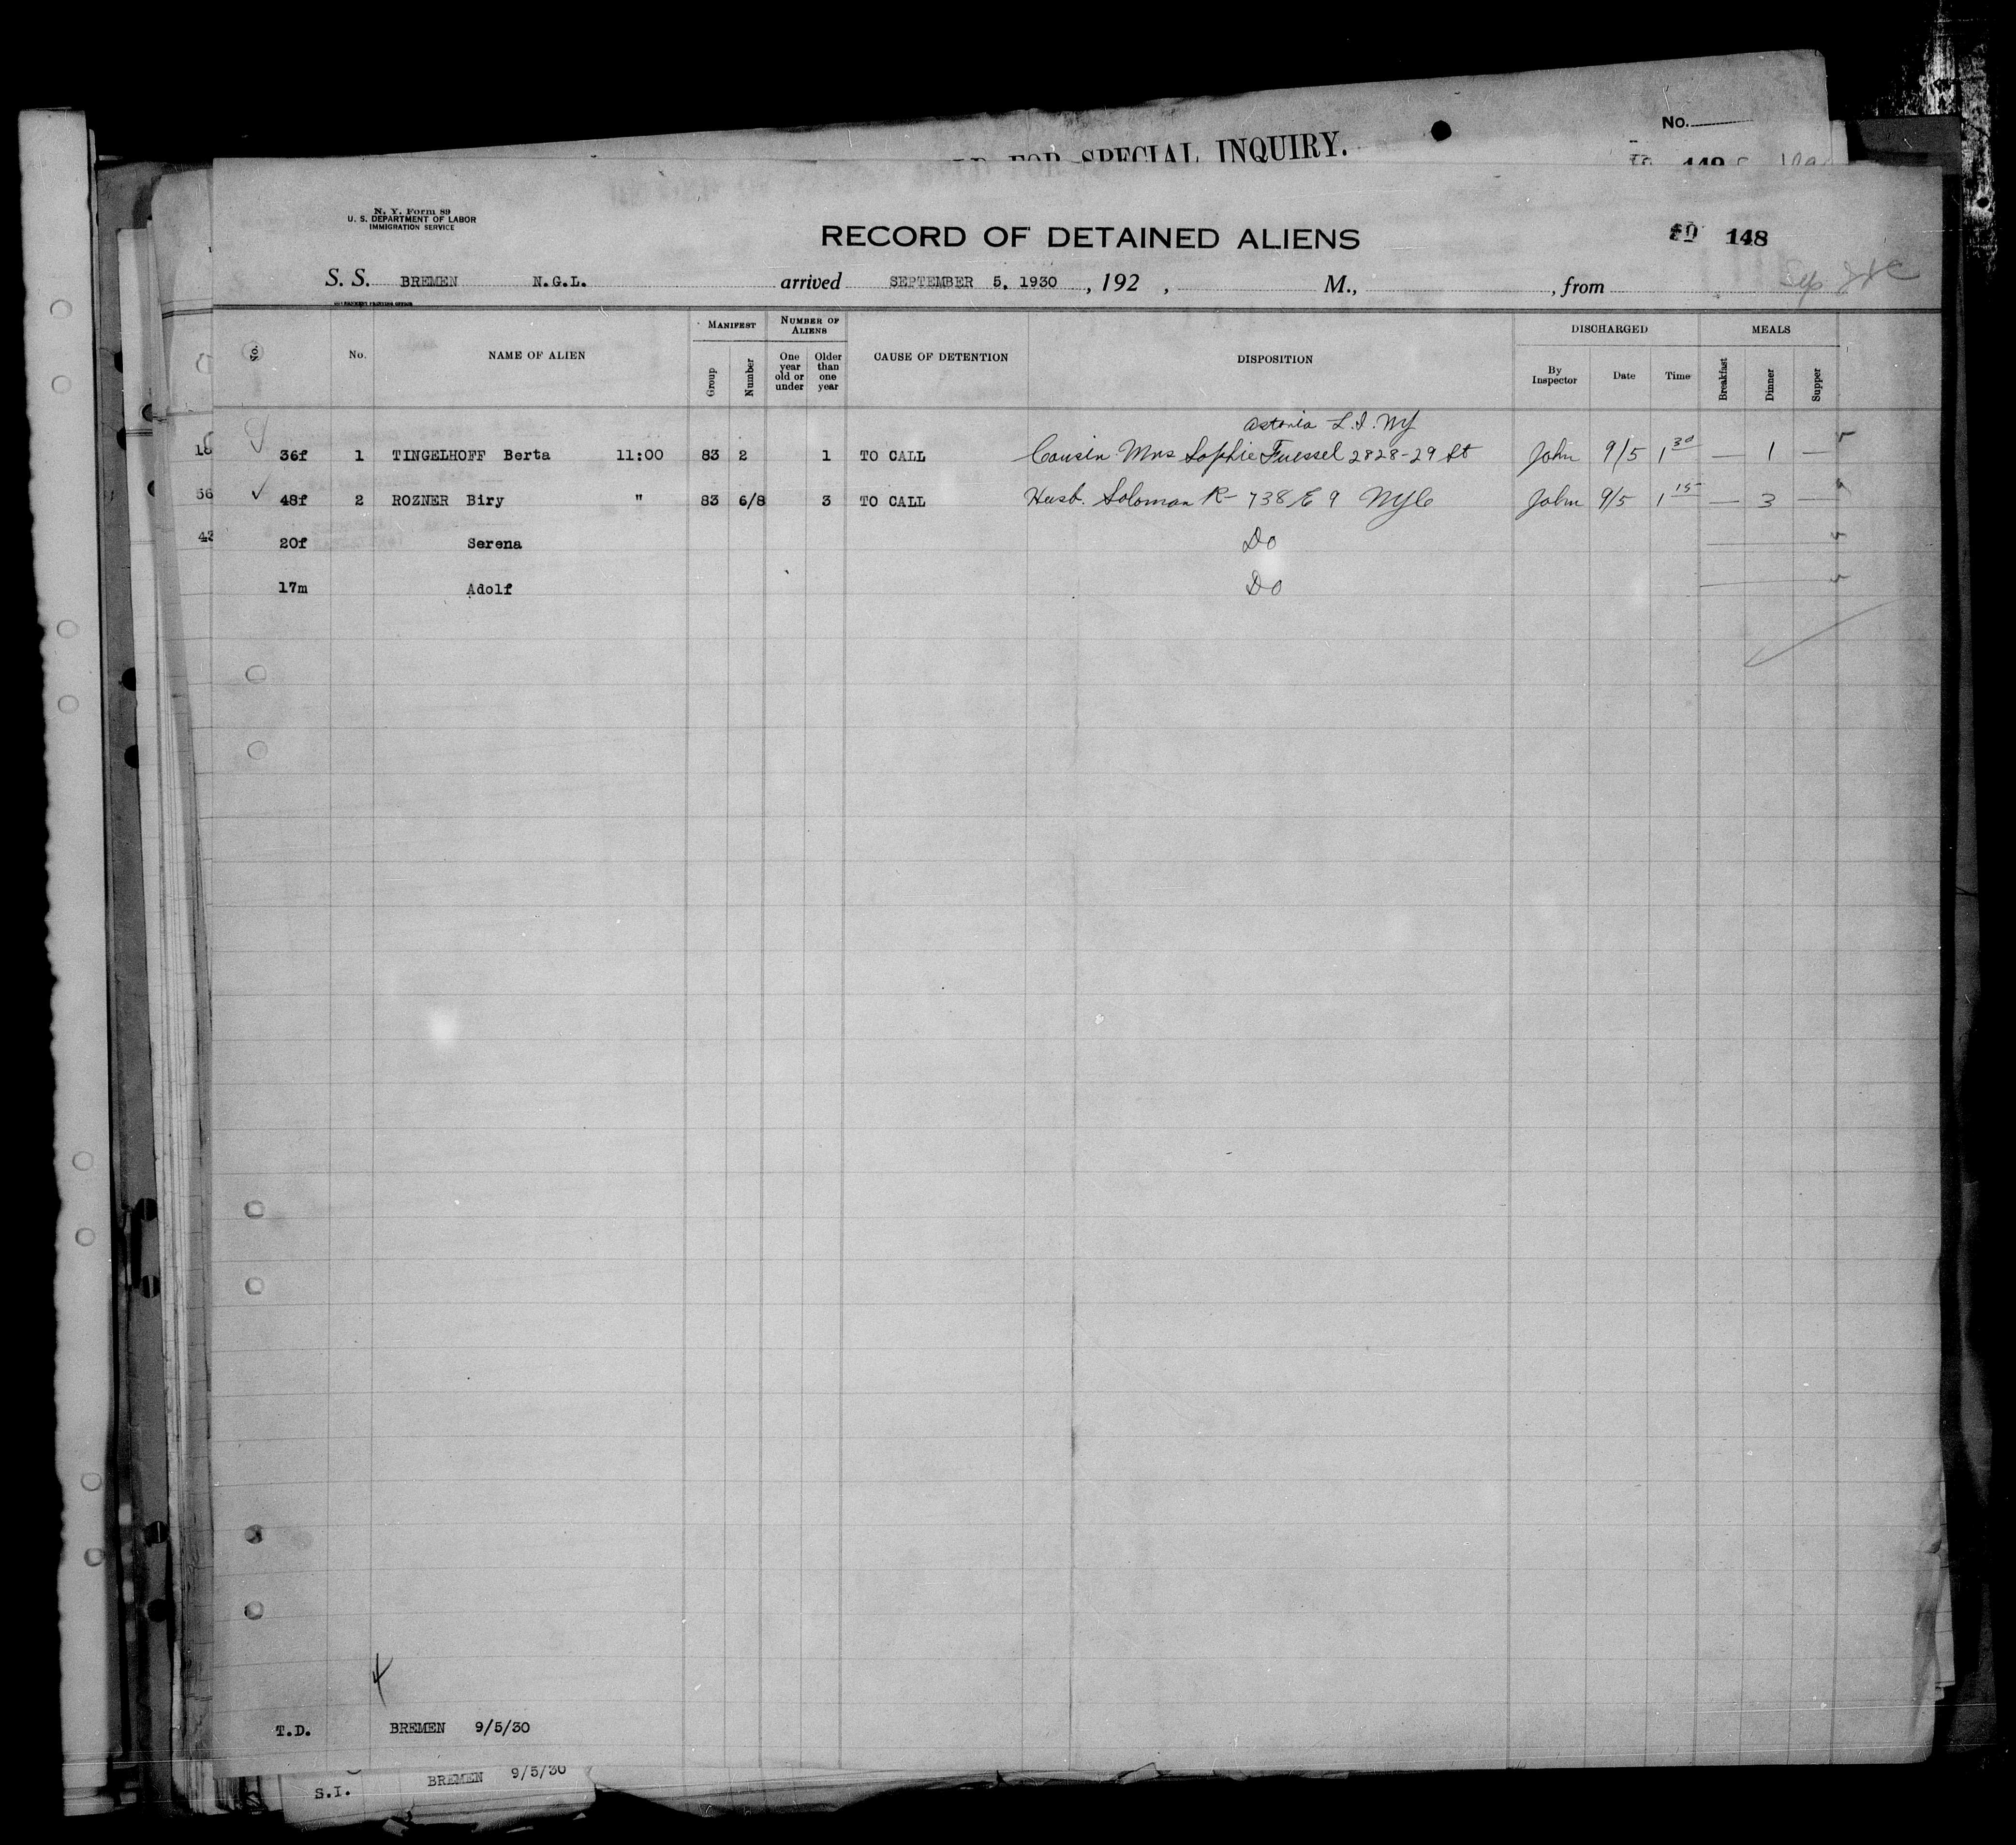 No.
FOR SPECIAL INQUIRY.
149
N. Y. Form 89
U. S. DEPARTMENT OF LABOR
IMMIGRATION SERVICE
RECORD OF DETAINED ALIENS
148
S. S. BREMEN N.G.L. arrived SEPTEMBER 5, 1930 , 192 , M., , from
Sep
No. No. NAME OF ALIEN MANIFEST Group Number NUMBER OF ALIENS One year old or under Older than one year CAUSE OF DETENTION DISPOSITION DISCHARGED By Inspector Date Time MEALS Breakfast Dinner Supper
Astoria L.I. NY
18 36f 1 TINGELHOFF Berta 11:00 83 2 1 TO CALL Cousin Mrs Sophie Fuessel 2828-29 St John 9/5 1 30 — 1 —
56 48f 2 ROZNER Biry " 83 6/8 3 TO CALL Husb. Soloman R- 738 E 9 NYC John 9/5 1 15 — 3 —
43 20f Serena Do
17m Adolf Do
4
T.D. BREMEN 9/5/30
S.I. BREMEN 9/5/30